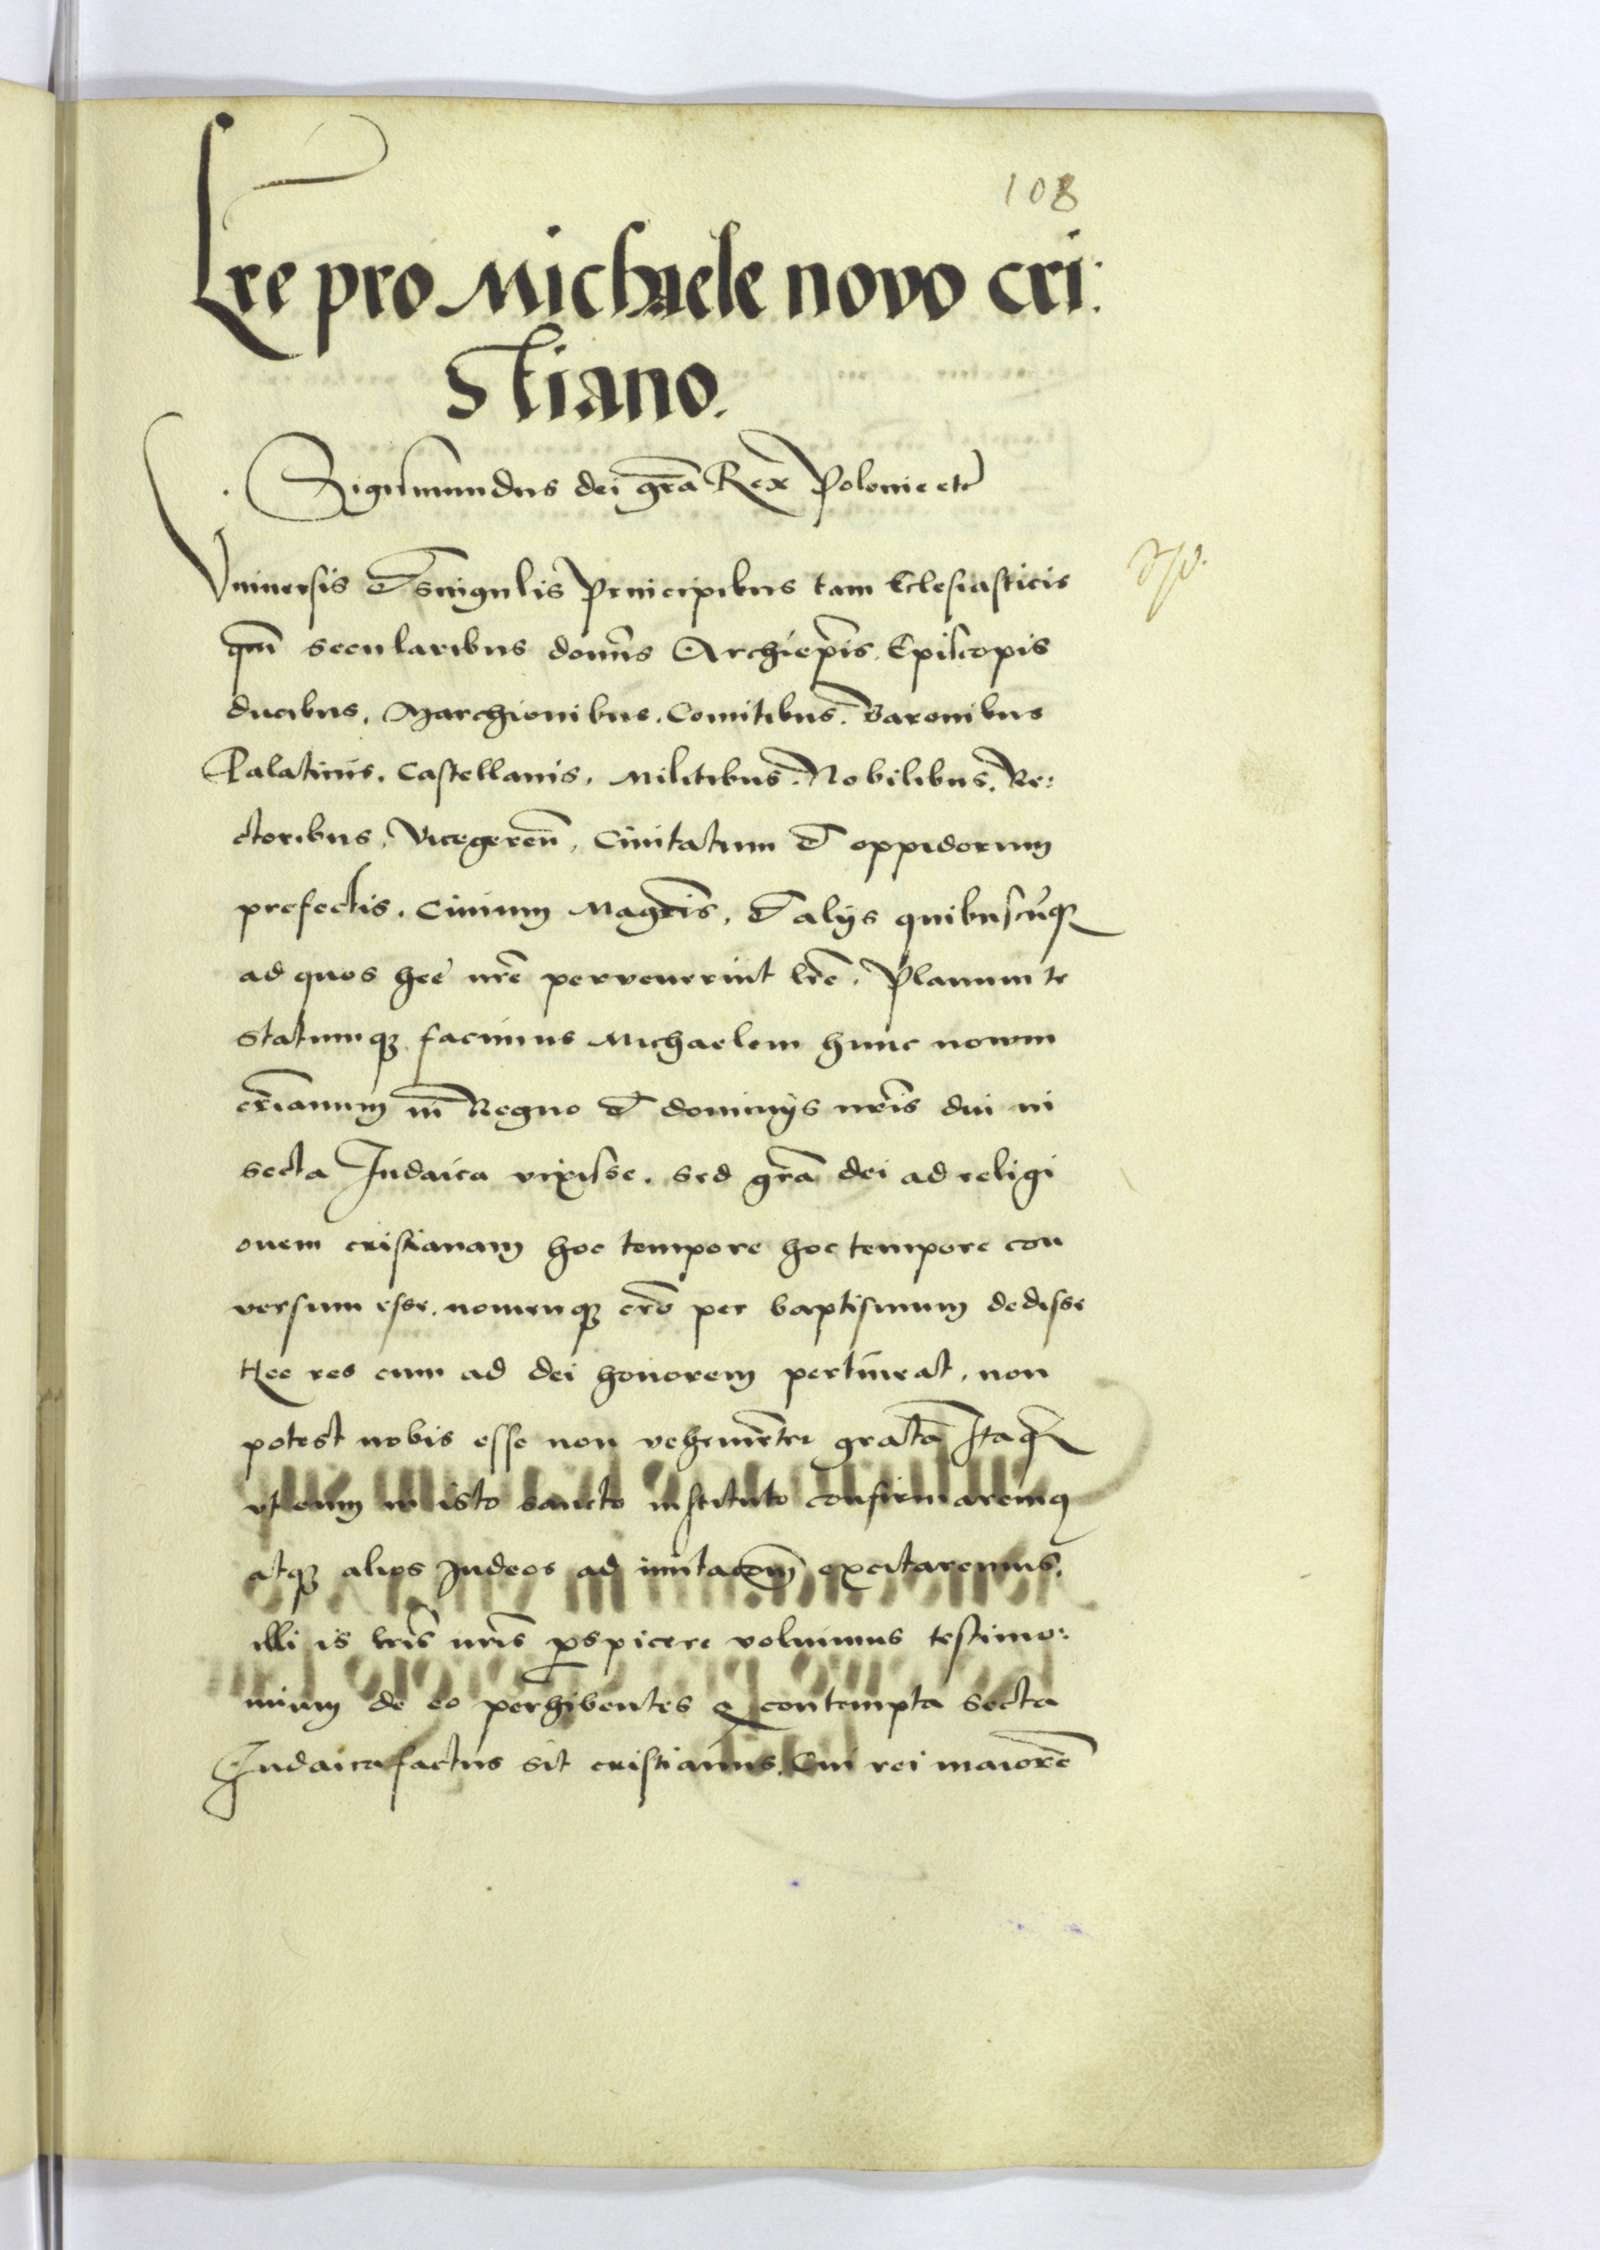 108
Lre pro Michaele novo cri:
stiano.
Sigismundus dei gra Rex Polonie etc
Vniuersis et singulis Principibus tam Eclesiasticis
qm secularibus domnis Archiepis. Episcopis
ducibus. Marchionibus. Comitibus. Baronibus
Palatinis. Castellanis. Militibus. Nobilibus. Re:
ctoribus. Vicegeren. Ciuitatum et oppidorum
prefectis. Ciuium Magris. et alijs quibuscumq
ad quos hee nre pervenerint lre. Planum te
statumq facimus Michaelem hunc novum
crianum in Regno et dominijs nris diu in
secta Judaica vixisse. sed gra dei ad religi
onem cristianam hoc tempore hoc tempore con
versum esse. nomenq cro per baptismum dedisse
Hec res cum ad dei honorem pertineat. non
potest nobis esse non vehementer grata Itaq
vt eum in isto sancto instituto confirmaremq
atq alios Judeos ad imitacom excitaremus.
illi is lris nris pspicere voluimus testimo:
nium de eo perhibentes q contempta secta
Judaica factus sit cristianus. Cui rei maiore